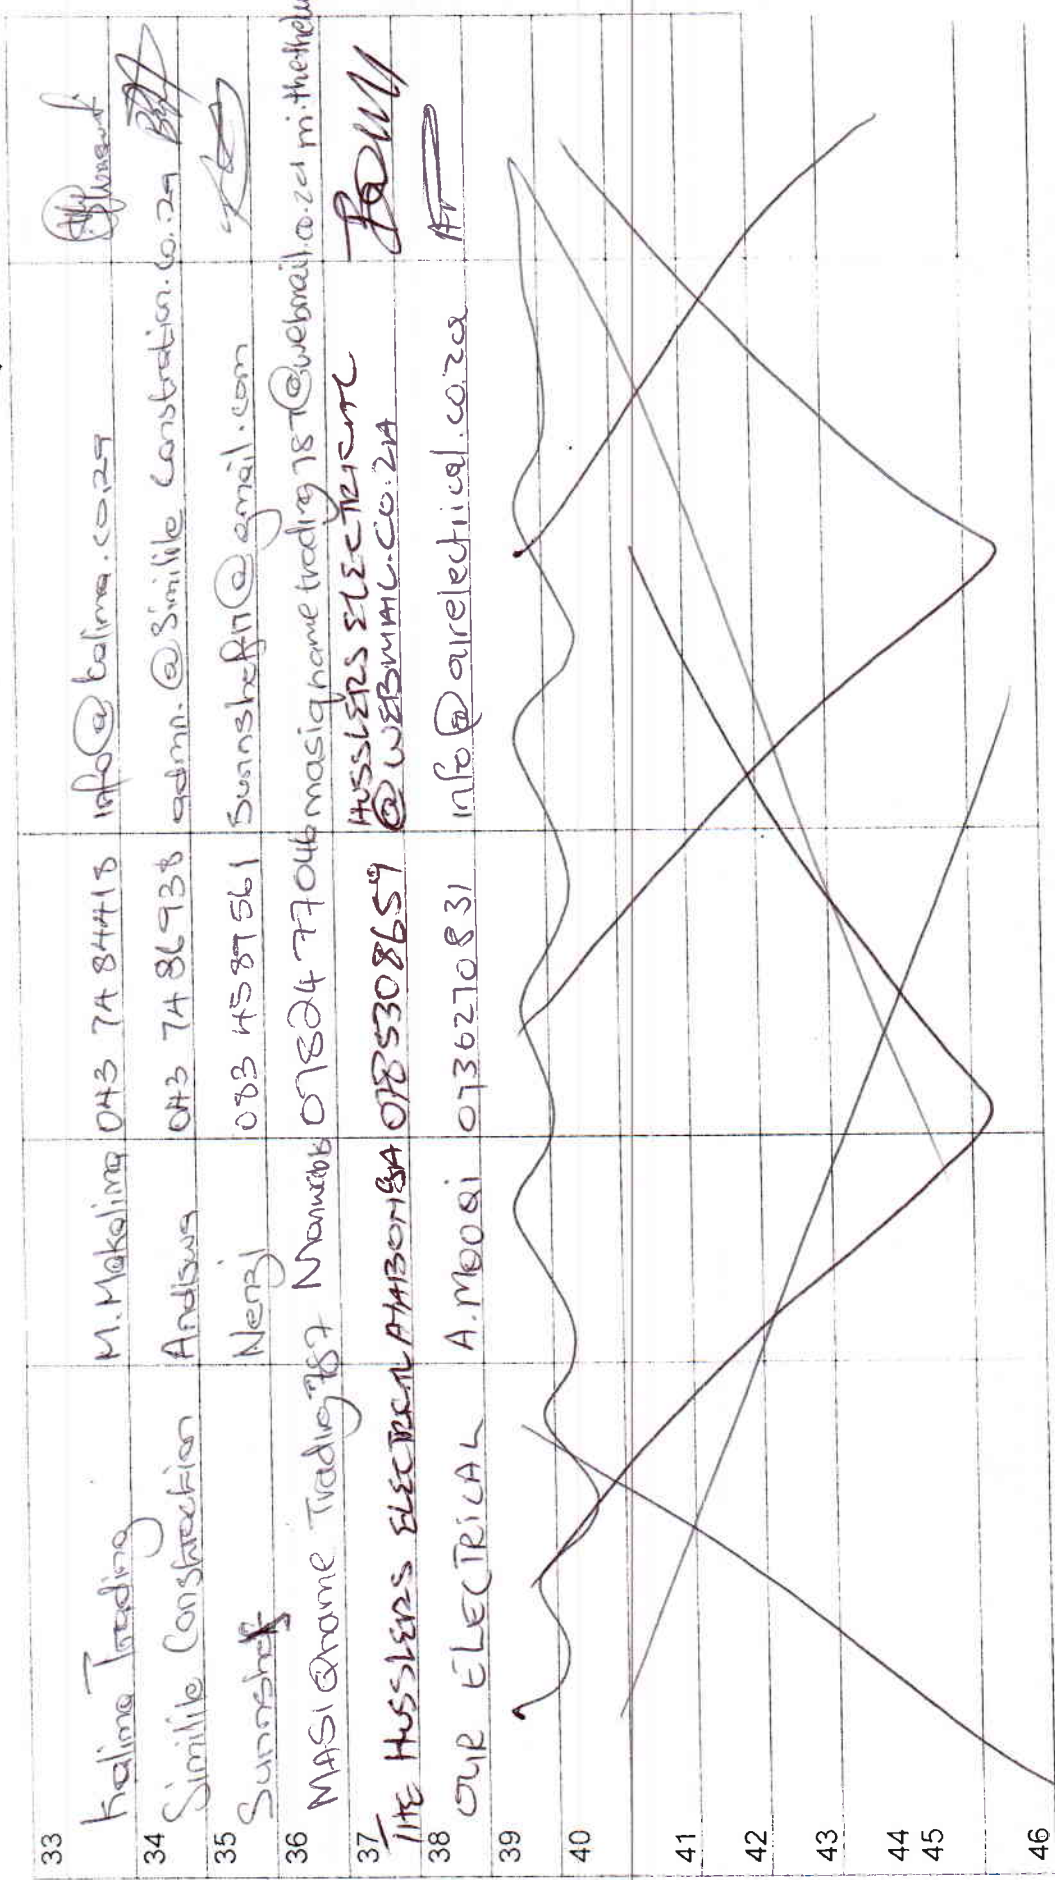 33 Kalima Trading M. Makalima 043 74 84418 info@kalima.co.za
34 Similile Constraction Andiswa 043 74 86938 admn.@Similile Constration.co.za
35 Sunnshef Nenzi 083 4589561 @gmail.com
36 MASIQhame Trading 787 078247 7046 masiqhametrading787@webmail.co.za
37 THE HUSSLERS ELECTRICAL 0785308659 HUSSLERS ELECTRICAL
@WEBMAIL.CO.ZA
38 OUR ELECTRICAL A. MQOQI 0736270831 info@ourelectrical.co.za
39
40
41
42
43
44
45
46